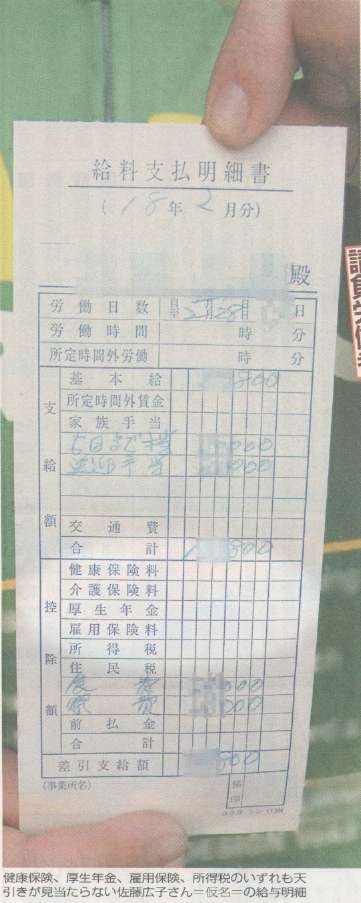 給料支払明細書
(18年2月分)
殿
労働日数 自 至 2月28日 日
労働時間 時 分
所定時間外労働 時 分
支給額
基本給 800
所定時間外賃金
家族手当
手当 000
送迎手当 000
交通費
合計 1 800
控除額
健康保険料
介護保険料
厚生年金
雇用保険料
所得税
住民税
費 000
寮費 000
前払金
合計
差引支給額 800
(事業所名) 係印
コクヨ シン-113N
健康保険、厚生年金、雇用保険、所得税のいずれも天
引きが見当たらない佐藤広子さん=仮名=の給与明細